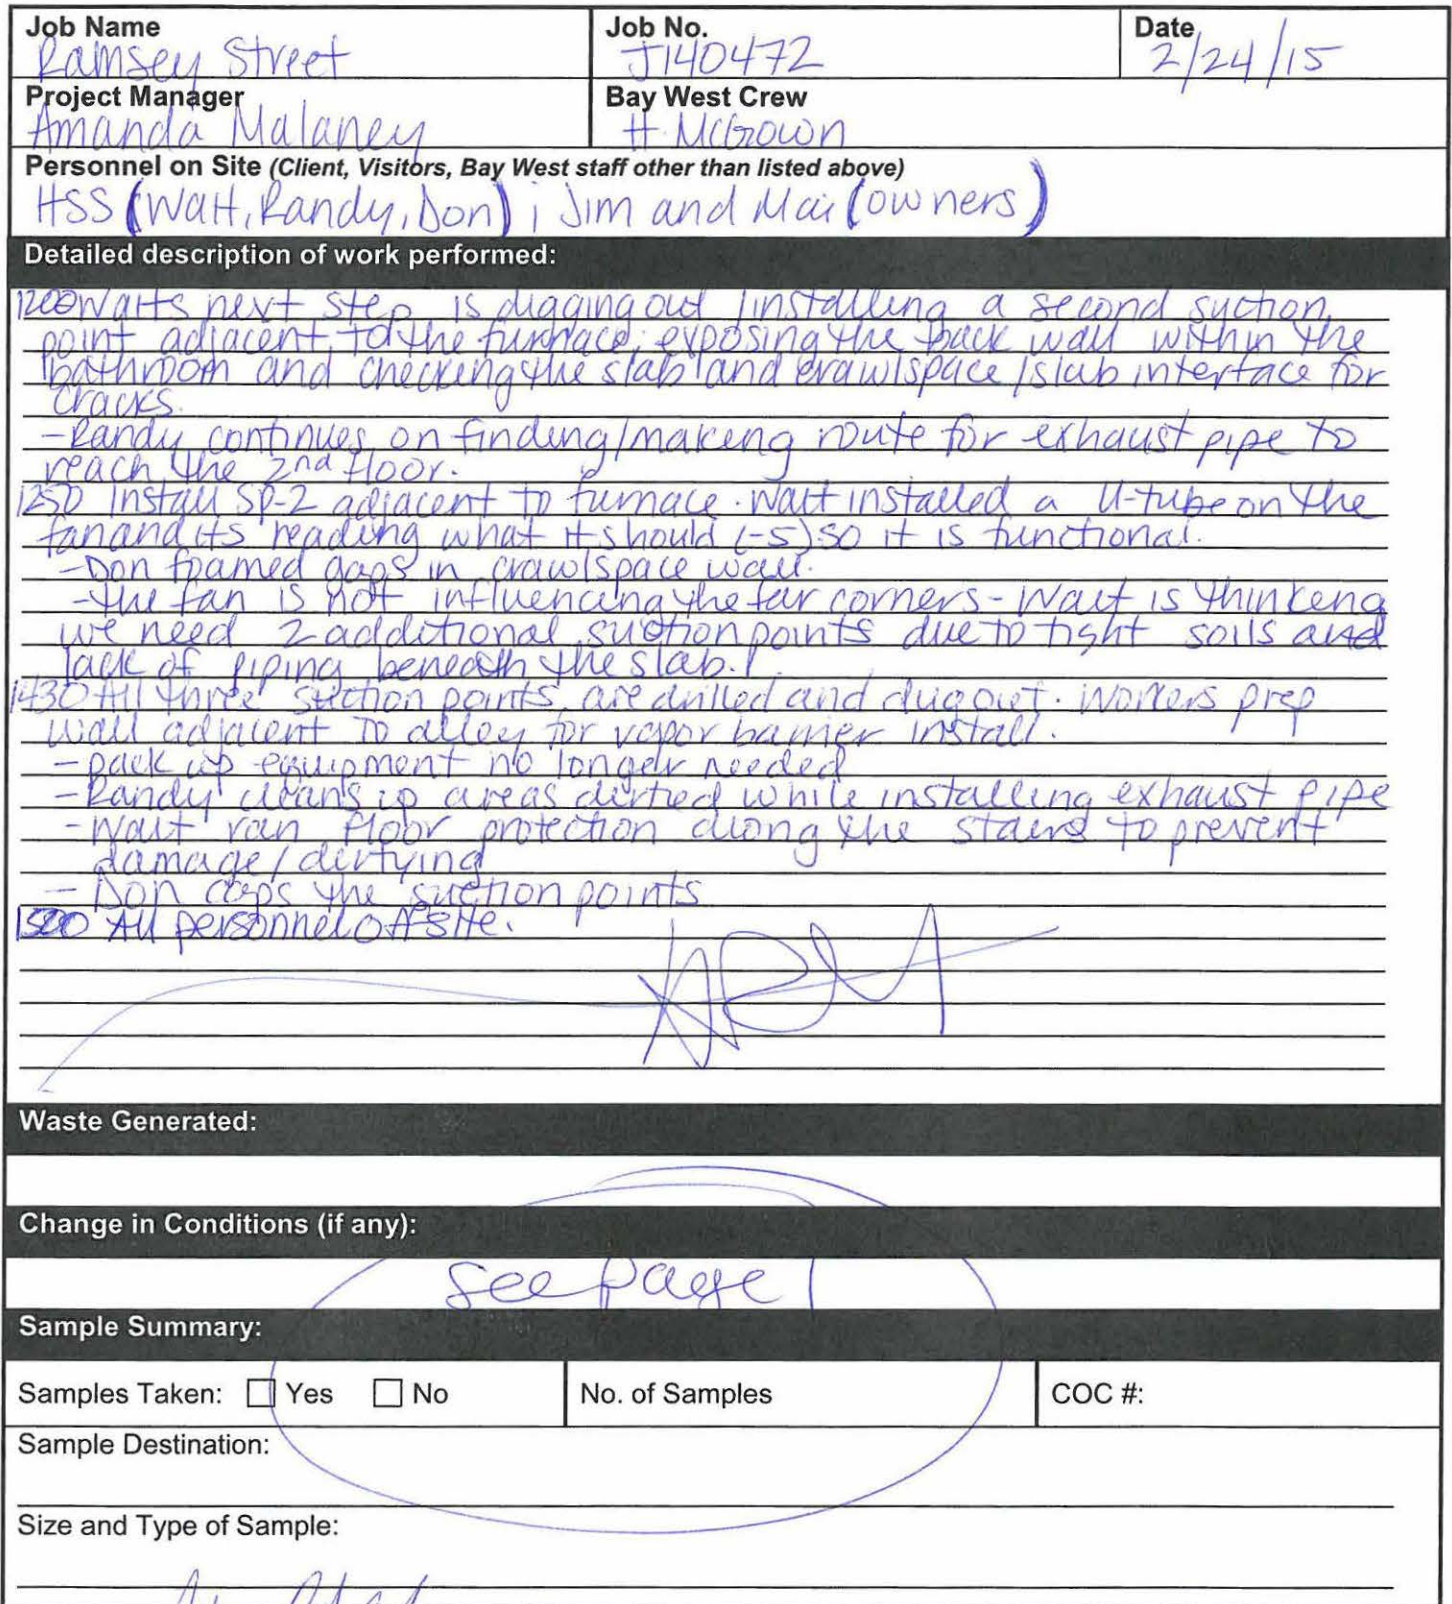 Job Name
Job No.
Date
Ramsey Street
J140472
2/24/15
Project Manager
Bay West Crew
Amanda Malaney
H. McGrown
Personnel on Site (Client, Visitors, Bay West staff other than listed above)
HSS (Walt, Randy, Don); Jim and Mai (owners)
Detailed description of work performed:
1200 Walts next step is digging out / installing a second suction
point adjacent to the furnace, exposing the back wall within the
bathroom and checking the slab and crawlspace/slab interface for
cracks.
- Randy continues on finding/making route for exhaust pipe to
reach the 2nd floor.
1250 Install SP-2 adjacent to furnace. Walt installed a U-tube on the
fan and its reading what it should (-5) so it is functional.
- Don foamed gaps in crawlspace wall.
- the fan is not influencing the far corners - Walt is thinking
we need 2 additional suction points due to tight soils and
lack of piping beneath the slab.
1430 All three suction points are drilled and dug out. Workers prep
wall adjacent to alley for vapor barrier install.
- pack up equipment no longer needed
- Randy cleans up areas dirtied while installing exhaust pipe
- Walt ran floor protection along the stairs to prevent
damage/dirtying
- Don caps the suction points
1500 All personnel off site.
Waste Generated:
Change in Conditions (if any):
See page 1
Sample Summary:
Samples Taken: ☐ Yes ☐ No
No. of Samples
COC #:
Sample Destination:
Size and Type of Sample: